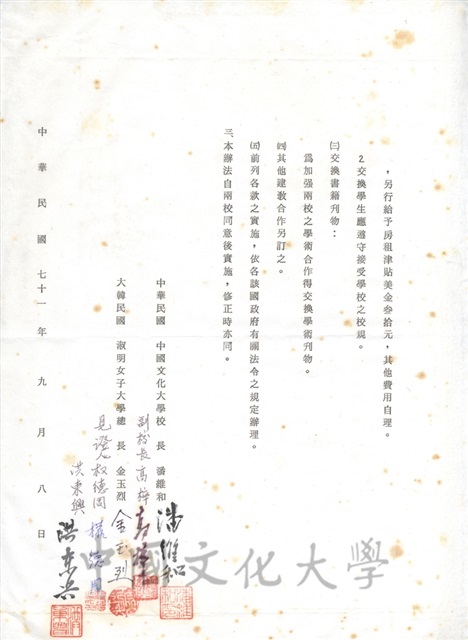 ，另行給予房租津貼美金叁拾元，其他費用自理。
2.交換學生應遵守接受學校之校規。
㈢交換書籍刊物：
為加强兩校之學術合作得交換學術刊物。
㈣其他建教合作另訂之。
㈤前列各款之實施，依各該國政府有關法令之規定辦理。
三、本辦法自兩校同意後實施，修正時亦同。
中華民國 中國文化大學校長 潘維和 潘維和
副校長高梓 高梓
大韓民國 淑明女子大學總長 金玉烈 金玉烈
見證人 权德周 權德周
洪東興 洪東興
中華民國七十一年九月八日
中國文化大學